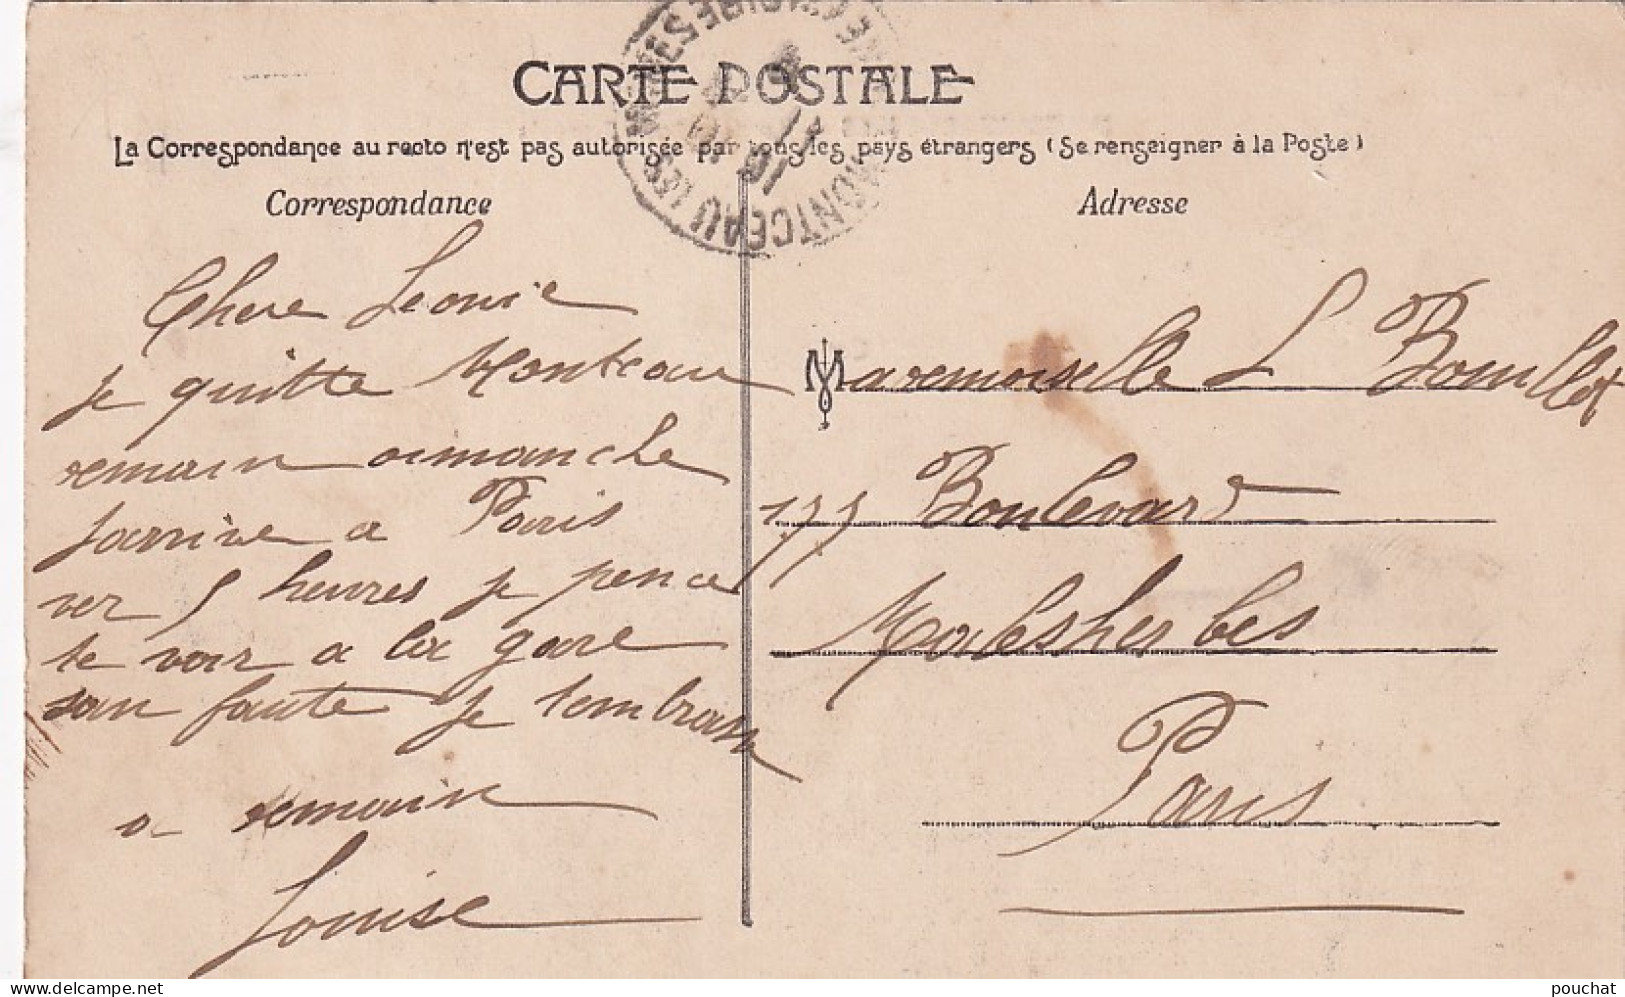 CARTE POSTALE
La Correspondance au recto n'est pas autorisée par tous les pays étrangers (Se renseigner à la Poste)
Correspondance
Chere Leonie
je quitte Montceau
demain dimanche
jarrive a Paris
ver 5 heures je pence
te voir a la gare
san faute je tembrasse
a demain
Louise
Adresse
Mademoiselle L Bouillot
177 Boulevard
Malesherbes
Paris
MONTCEAU LES MINES
delcampe.net
pouchat